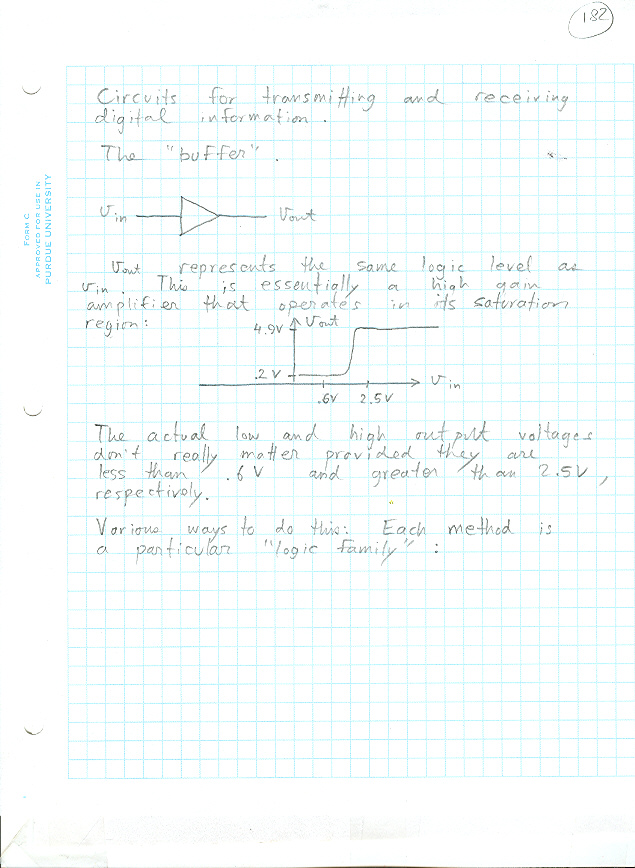 182
Circuits for transmitting and receiving
digital information.
The "buffer".
FORM C
APPROVED FOR USE IN
PURDUE UNIVERSITY
Vin Vout
Vout represents the same logic level as
Vin. This is essentially a high gain
amplifier that operates in its saturation
region:
4.9V Vout
.2V
Vin
.6V 2.5V
The actual low and high output voltages
don't really matter provided they are
less than .6V and greater than 2.5V,
respectively.
Various ways to do this: Each method is
a particular "logic family":